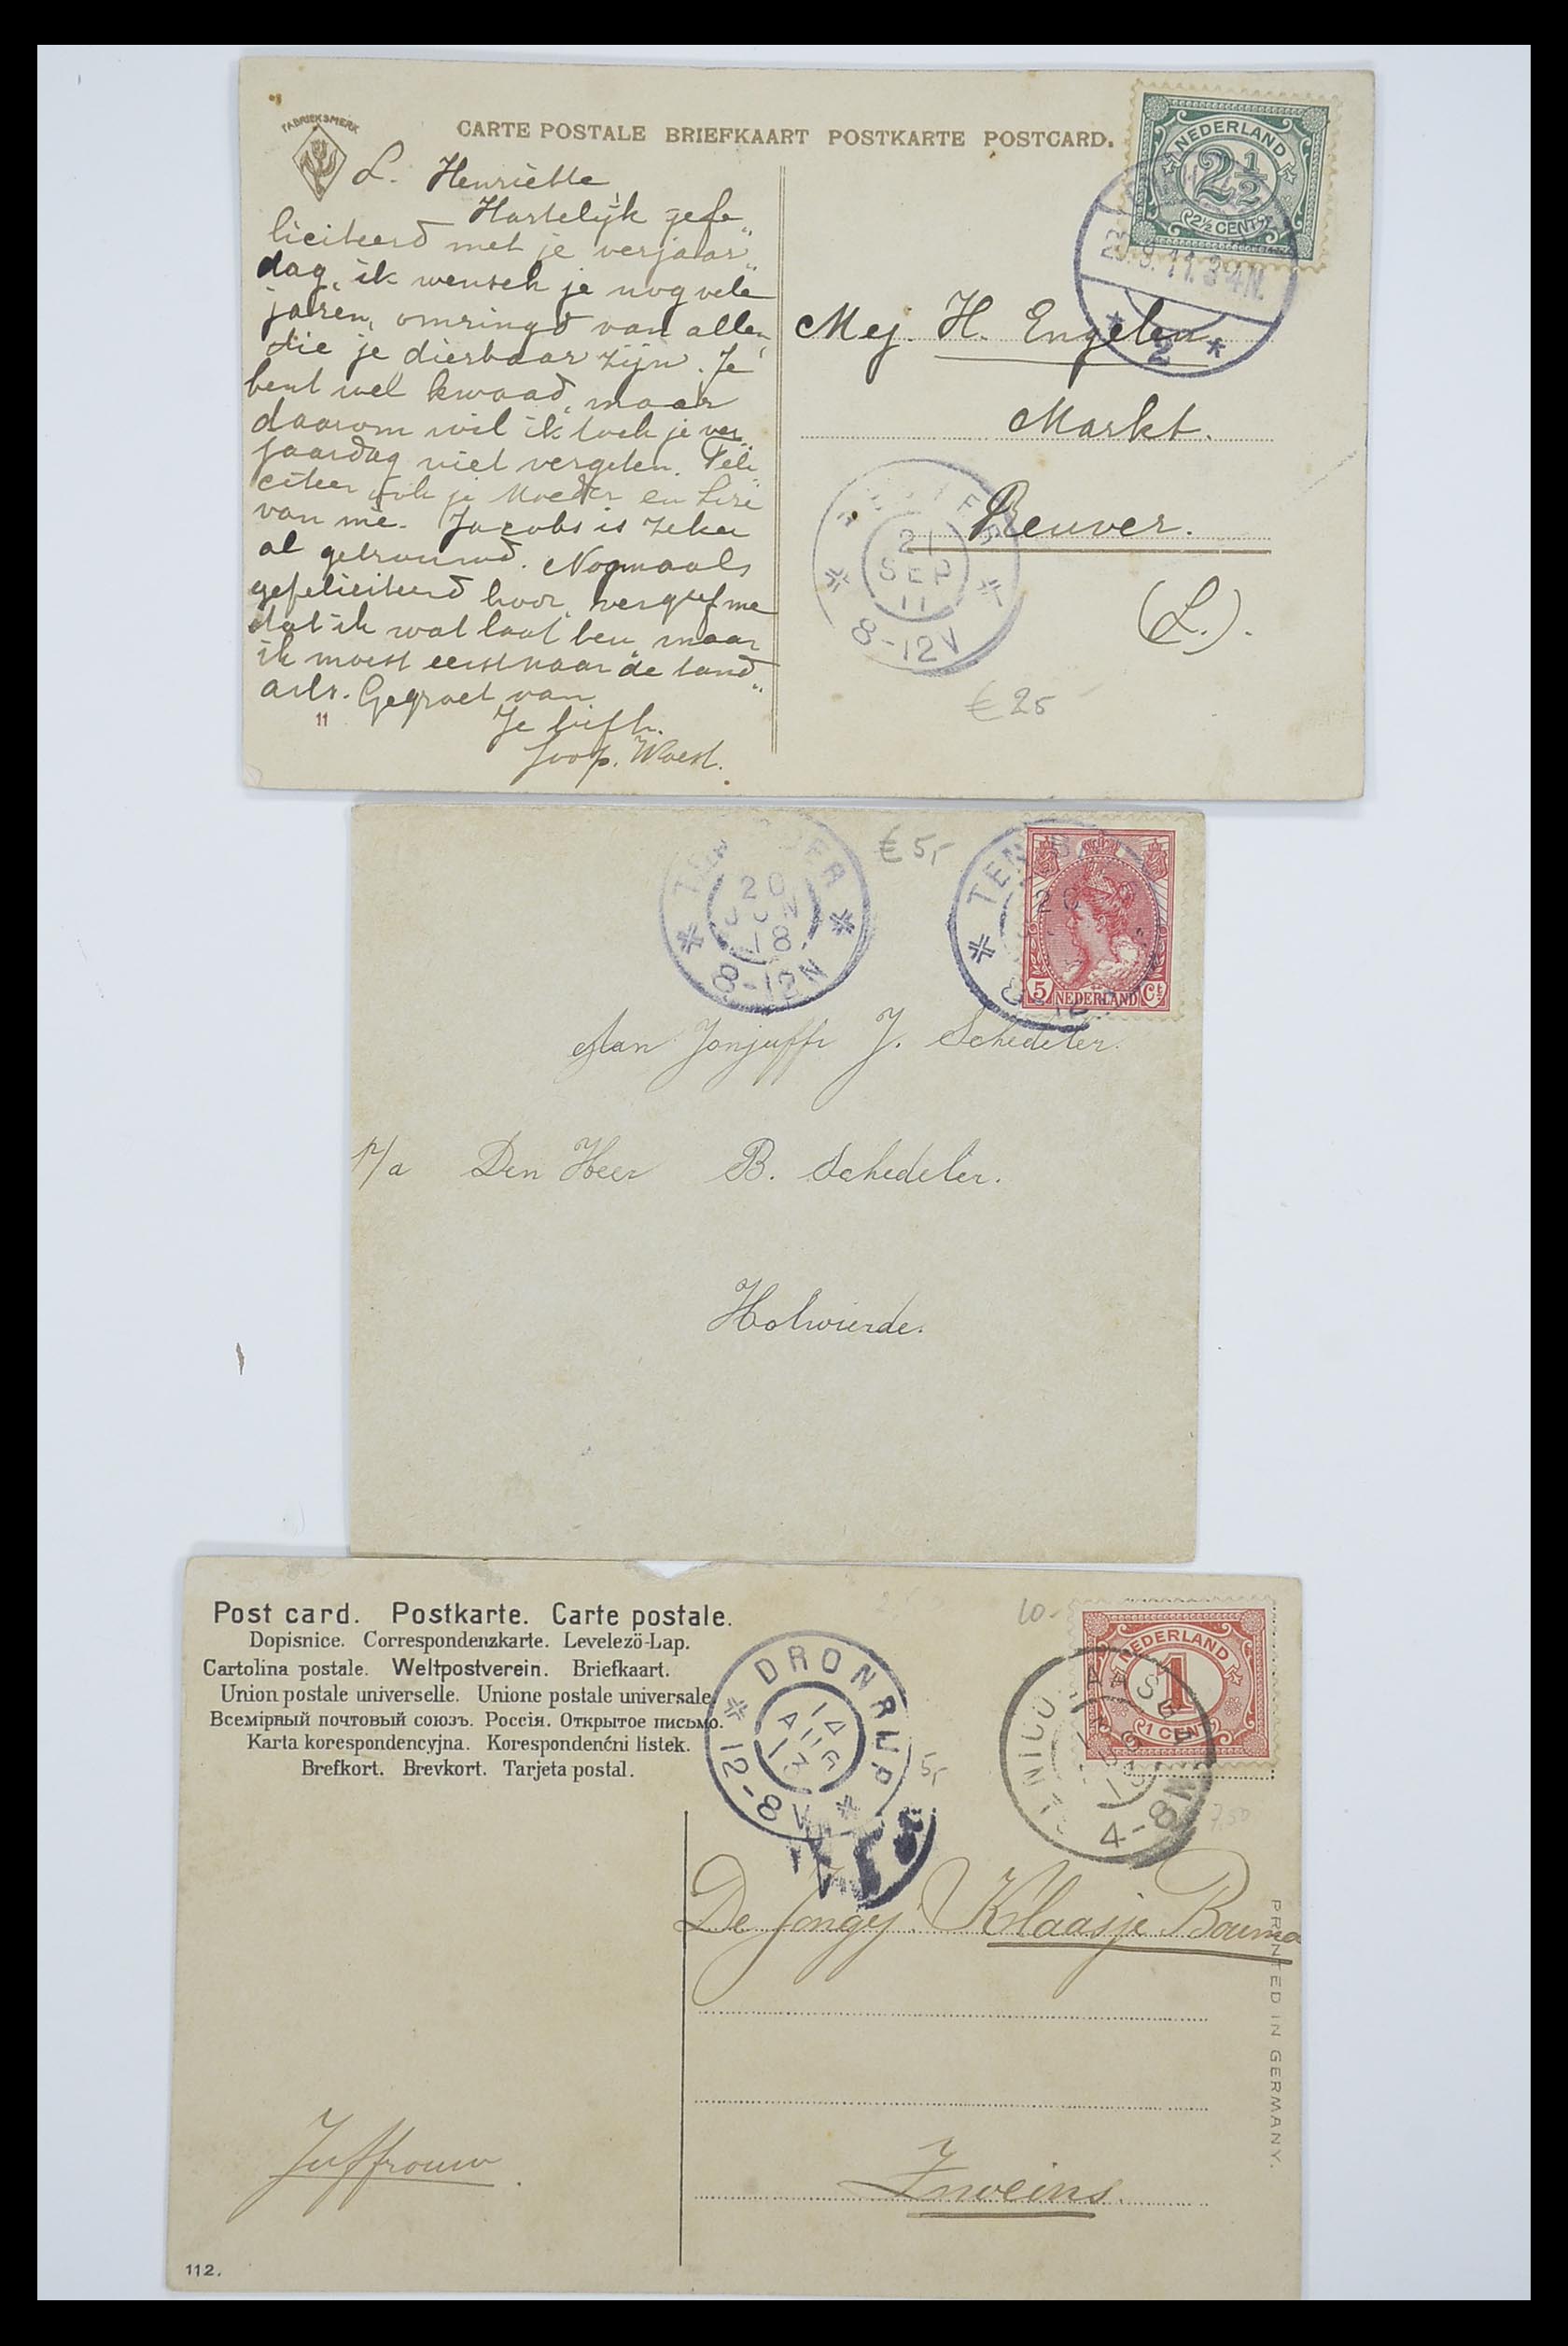 FABRIEKSMERK
CARTE POSTALE BRIEFKAART POSTKARTE POSTCARD.
L. Henriëtte
Hartelijk gefe„
liciteerd met je verjaar„
dag, ik wensch je nog vele
jaren, omringd van allen,
die je dierbaar zijn. Je
bent wel kwaad, maar
daarom wil ik toch je ver„
jaardag niet vergeten. Feli„
citeer ook je Moeder en
van mè. Jacobs is zeker
al getrouwd. Nogmaals
gefeliciteerd hoor, vergeef me
dat ik wat laat ben, maar
ik moest eerst naar de tand„
arts. Gegroet van
Je
Joop.
11
NEDERLAND
2½
2½ CENT
9.11.3-4N.
2
Mej. H. Engelen.
Markt.
Reuver.
(L.).
21
SEP
11
8-12V
€ 25
TEN BOER
20
JUN
18
8-12N
€ 5,-
TEN
20
5 NEDERLAND CT
Aan Jonjuffr J. Schedeler.
p/a Den Heer B. Schedeler.
Holwierde.
Post card. Postkarte. Carte postale.
Dopisnice. Correspondenzkarte. Levelezö-Lap.
Cartolina postale. Weltpostverein. Briefkaart.
Union postale universelle. Unione postale universale.
Всемірный почтовый союзъ. Россія. Открытое письмо.
Karta korespondencyjna. Korespondenčni listek.
Brefkort. Brevkort. Tarjeta postal.
DRONRIJP
14
AUG
13
12-8V
5,-
10-
NEDERLAND
1
1 CENT
4-8N
7.50
De Jongej. Klaasje Bouma
Zweins.
Juffrouw.
PRINTED IN GERMANY.
112.